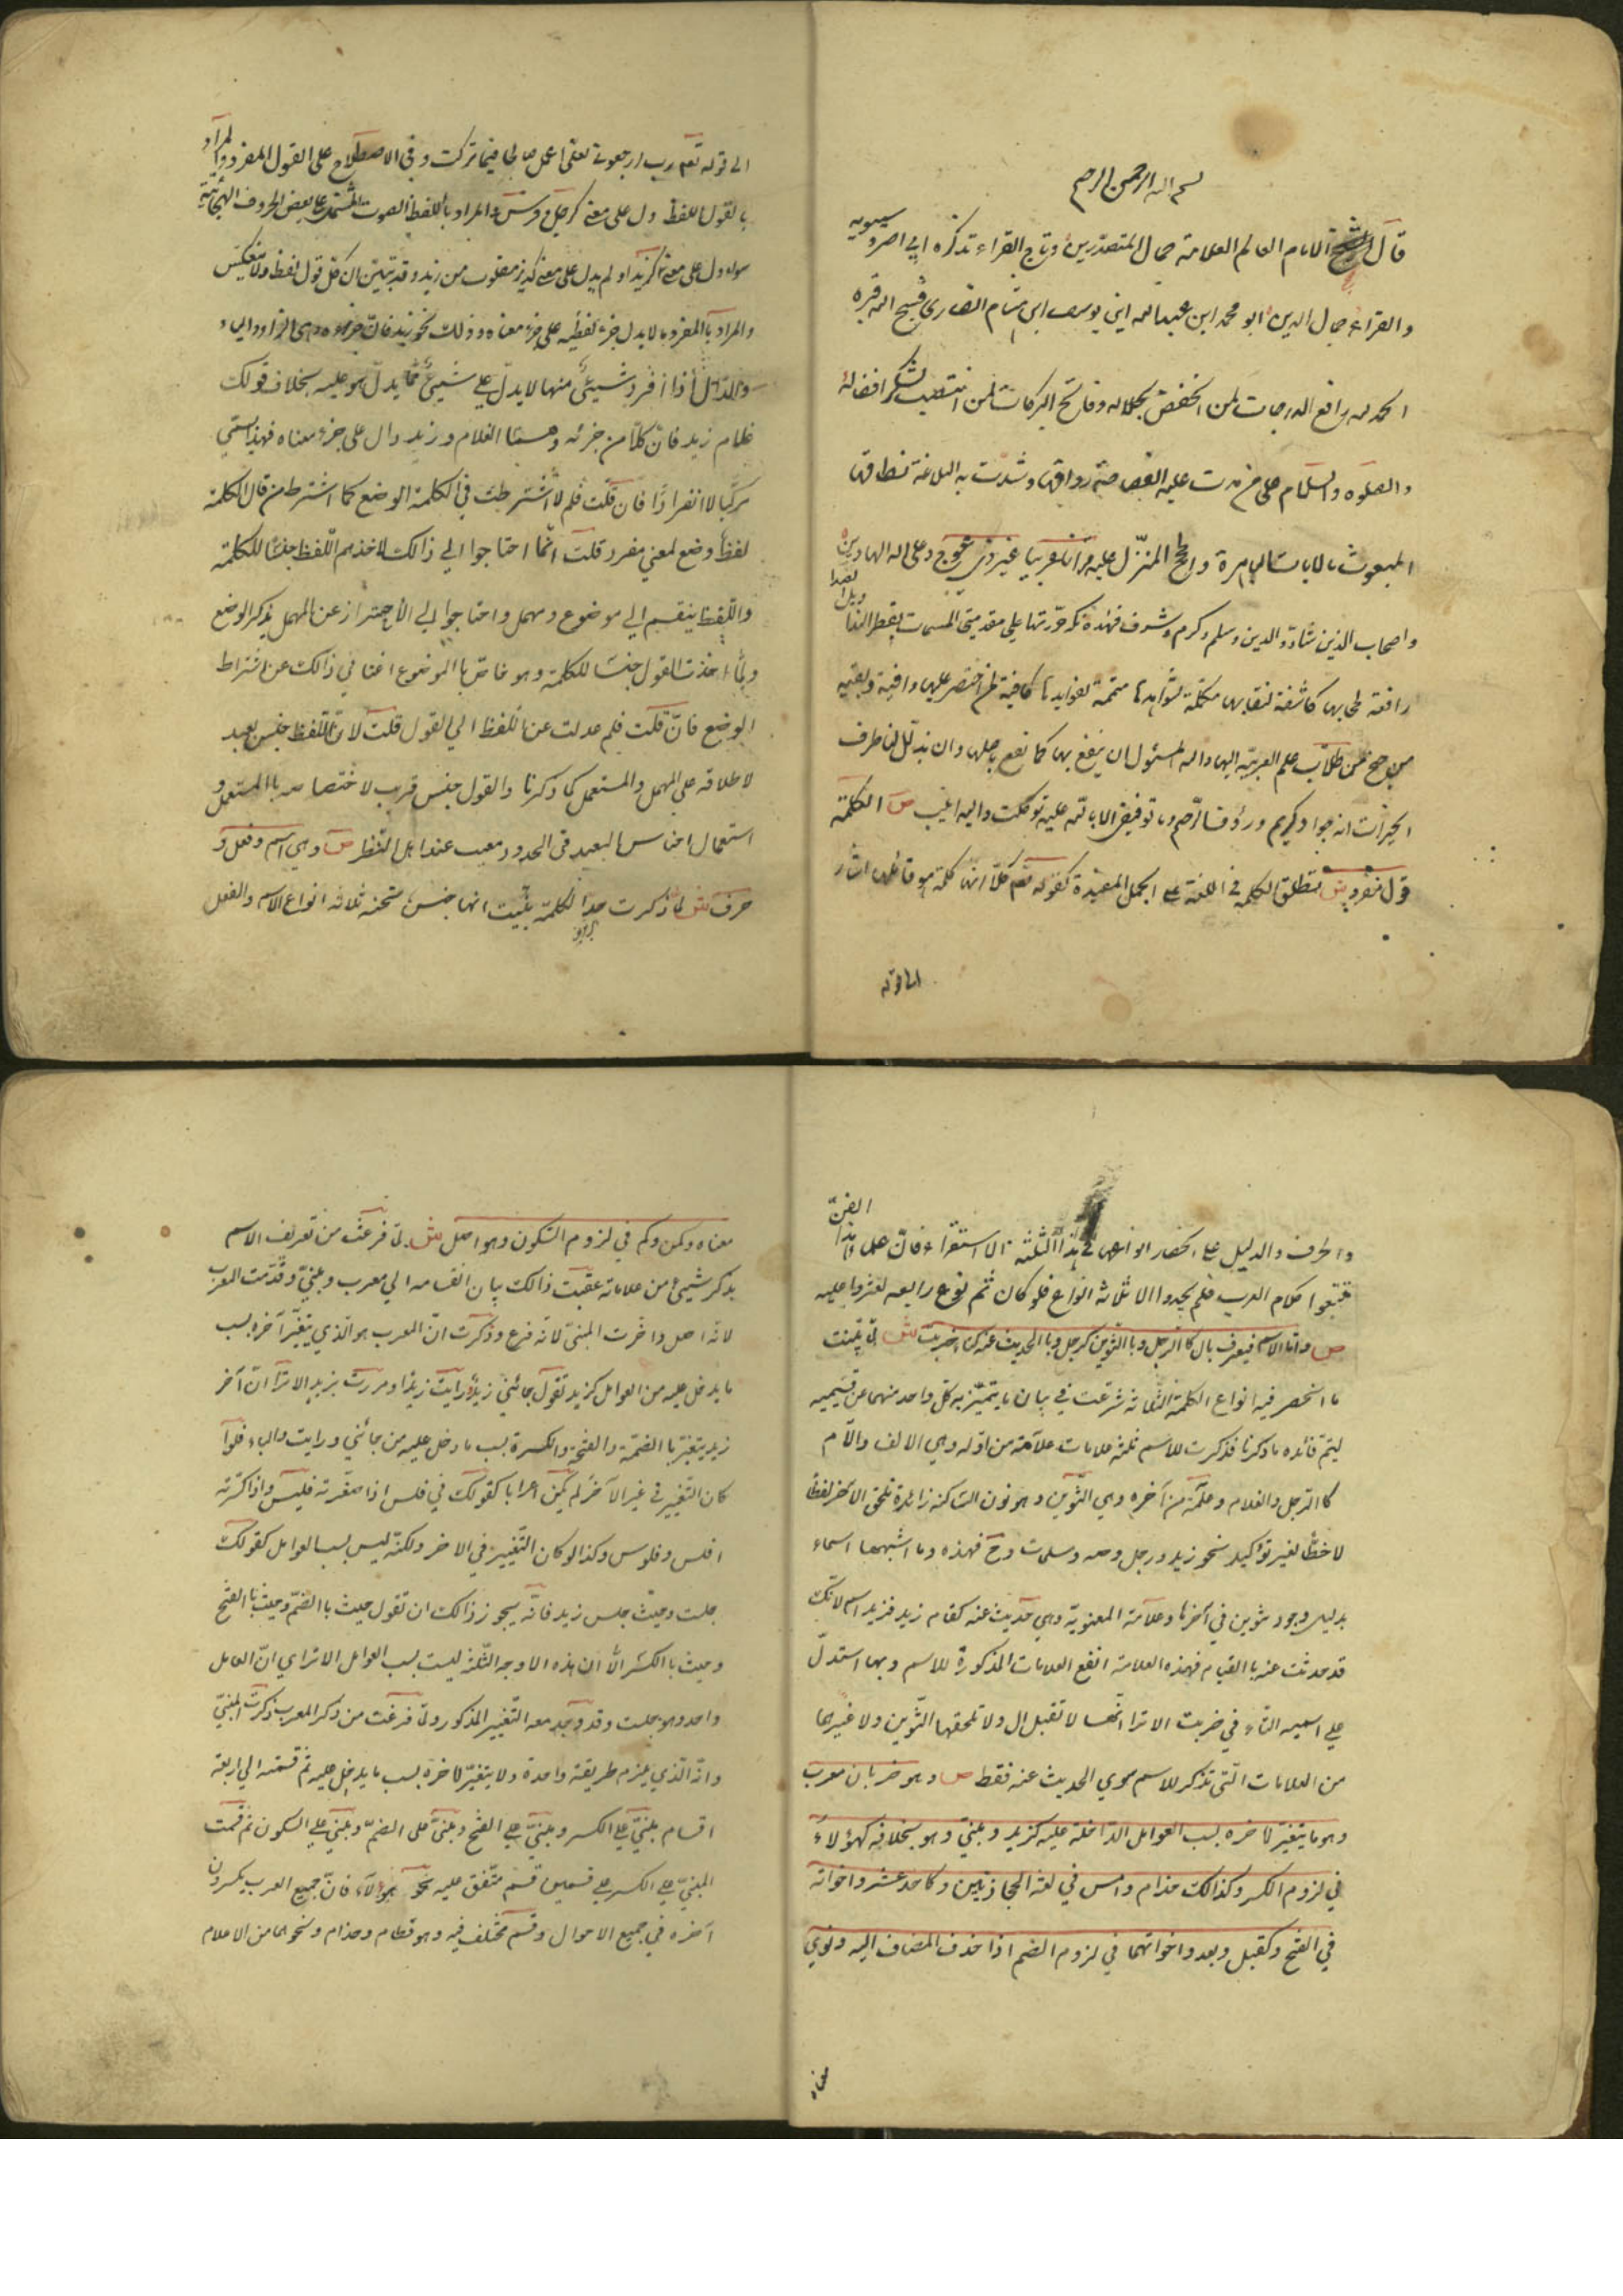 بسم الله الرحمن الرحيم
قال الشيخ الامام العالم العلامة جمال المتصدرين وتاج القراء تذكرة ابى عمرو سيبويه
والفراء جمال الدين ابو محمد ابن عبد الله ابن يوسف ابن هشام انصارى فسح الله قبره
الحمد لله رافع الدرجات لمن انخفض بجلاله وفاتح البركات لمن انتصب لشكر افضاله
والصلوة والسلام على من مدت عليه الفصاحة رواقها وشدت به البلاغة نطاقها
المبعوث بالايات الباهرة والحجج المنزل عليه قرآنا عربيا غير ذى عوج وعلى اله الهادين
واصحاب الذين شادوا الدين وسلم وكرم وشرف فهذه نكت حررتها على مقدمتى المسمات بقطر الندا
وبل الصدا
رافعة لحجابها كاشفة لنقابها مكملة لشواهدها متممة لفوايدها كافية لمن اختصر عليها وافية ببغية
من جنح من طلاب علم العربية اليها والله المسئول ان ينفع بها كما نفع باصلها وان يذلل لنا طرق
الخيرات انه جواد كريم ورؤف رحيم وما توفيقى الا بالله عليه توكلت واليه انيب ص الكلمة
قول مفرد ش تطلق الكلمة فى اللغة على الجمل المفيدة كقوله تعم كلا انها كلمة هو قائلها اشار
الى قوله
الى قوله تعم رب ارجعون لعلى اعمل صالحا فيما تركت وفى الاصطلاح على القول المفرد والمراد
بالقول اللفظ دل على معنى كرجل وفرس والمراد باللفظ الصوت المشتمل على بعض الحروف الهجائية
سواء دل على معنى كزيد او لم يدل على معنى كديز مقلوب من زيد وقد تبين ان كل قول لفظ ولا ينعكس
والمراد بالمفرد ما لا يدل جزء لفظه على جزء معناه وذلك نحو زيد فان جزءه وهى الزا والياء
والدال اذا افرد شيئ منها لا يدل على شيئ مما يدل هو عليه بخلاف قولك
غلام زيد فان كلا من جزئه وهما الغلام وزيد دال على جزء معناه فهذا سمى
مركبا لا انفرادا فان قلت فلم لا اشترطت فى الكلمة الوضع كما اشترط من قال الكلمة
لفظ وضع لمعنى مفرد قلت انما احتاجوا الى ذالك لاخذهم اللفظ جنسا للكلمة
واللفظ ينقسم الى موضوع ومهمل واحتاجوا الى الاحتراز عن المهمل بذكر الوضع
ولما اخذت القول جنسا للكلمة وهو خاص بالموضوع اغنا فى ذالك عن اشتراط
الوضع فان قلت فلم عدلت عن اللفظ الى القول قلت لان اللفظ جنس بعيد
لاطلاقه على المهمل والمستعمل كما ذكرنا والقول جنس قريب لاختصاصه باالمستعمل و
استعمال اجناس البعيد فى الحدود معيب عند اهل النظر ص وهى اسم وفعل و
حرف ش لما ذكرت حد الكلمة بينت انها جنس تحته ثلاثه انواع الاسم والفعل
والحرف والدليل على انحصار انواعها فى هذا الثلثة الاستقراء فان علماء هذا
الفن
تتبعوا كلام العرب فلم يجدوا الا ثلاثه انواع فلو كان ثم نوع رابعه لعثروا عليه
ص واما الاسم فيعرف بال كا الرجل وبا التنوين كرجل وبا الحديث عنه كتاء ضربت ش لما بينت
ما انحصر فيه انواع الكلمة الثلاثه شرعت فى بيان ما يتميز به كل واحد منهما عن قسيميه
ليتم فائده ما ذكرنا فذكرت للاسم ثلثه علامات علامة من اوله وهى الالف واللام
كا الرجل والغلام وعلامة من آخره وهى التنوين وهو نون الساكنة زائدة تلحق الاخر لفظا
لا خطا لغير تؤكيد نحو زيد ورجل وصه ومسلمات وح فهذه وما اشبهها اسماء
بدليل وجود تنوين فى آخرها وعلامة المعنوية وهى حديث عنه كقام زيد فزيد اسم لانك
قد حدثت عنه باالقيام فهذه العلامة انفع العلامات المذكورة للاسم وبها استدل
على اسميه التاء فى ضربت الا ترا انها لا تقبل ال ولا تلحقها التنوين ولا غيرها
من العلامات التى تذكر للاسم سوى الحديث عنه فقط ص وهو ضربان معرب
وهو ما يتغير لاخره بسبب العوامل الداخلة عليه كزيد ومبنى وهو بخلافه كهؤلاء
فى لزوم الكسر وكذالك حذام وامس فى لغة الحجازيين وكاحد عشر واخواته
فى الفتح وكقبل وبعد واخواتهما فى لزوم الضم اذا حذف المضاف اليه ونوى
معناه
معناه وكمن وكم فى لزوم السكون وهو اصل ش لما فرغت من تعريف الاسم
بذكر شيئ من علاماته عقبت ذالك بيان انقسامه الى معرب ومبنى وقدمت المعرب
لانه اصل واخرت المبنى لانه فرع وذكرت ان المعرب هو الذى يتغير آخره بسبب
ما يدخل عليه من العوامل كزيد تقول جائنى زيد ورايت زيدا ومررت بزيد الا ترا ان آخر
زيد يتغير با الضمة والفتحة والكسرة بسبب ما دخل عليه من جائنى ورايت والباء فلو
كان التغيير فى غير الآخر لم يكن اعرابا كقولك فى فلس اذا صغرته فليس واذا كسرته
افلس وفلوس وكذا لو كان التغيير فى الاخر ولكنه ليس بسب العوامل كقولك
جلست حيث جلس زيد فانه يجوز ذالك ان تقول حيث باالضم وحيث باالفتح
وحيث باالكسر الا ان هذه الاوجه الثلثة ليست بسبب العوامل الا ترا اى ان العامل
واحد وهو جلست وقد وجد معه التغيير المذكور ولما فرغت من ذكر المعرب ذكرت المبنى
وانه الذى يلزم طريقة واحدة ولا يتغير لاخره بسبب ما يدخل عليه ثم قسمته الى اربعة
اقسام مبنى على الكسر ومبنى على الفتح ومبنى على الضم ومبنى على السكون ثم قسمت
المبنى على الكسر على قسمين قسم متفق عليه نحو هؤلاء فان جميع العرب يكسرون
آخره فى جميع الاحوال وقسم مختلف فيه وهو قطام وحذام ونحوهما من الاعلام